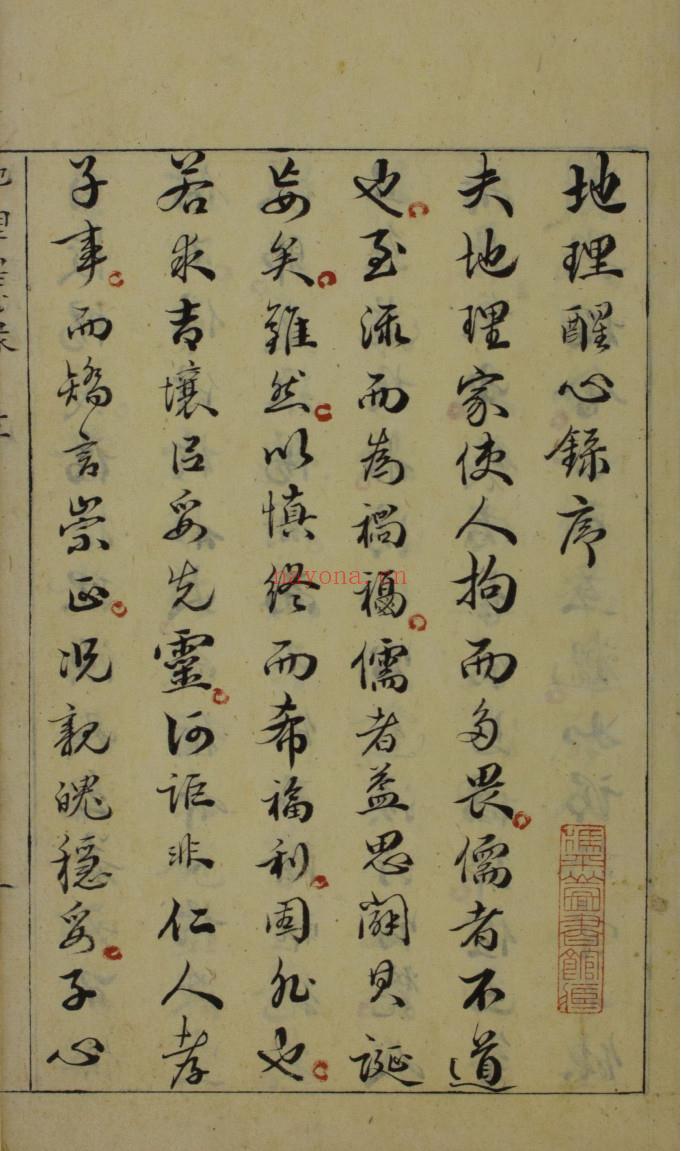 地理醒心錄序
夫地理家使人拘而多畏儒者不道
也至流而為禍福儒者益思闢其誕
妄矣雖然以慎終而希福利固非也
若求吉壤以妥先靈何詎非仁人孝
子事而矯言崇正況親魄穩妥子心
nayona.cn